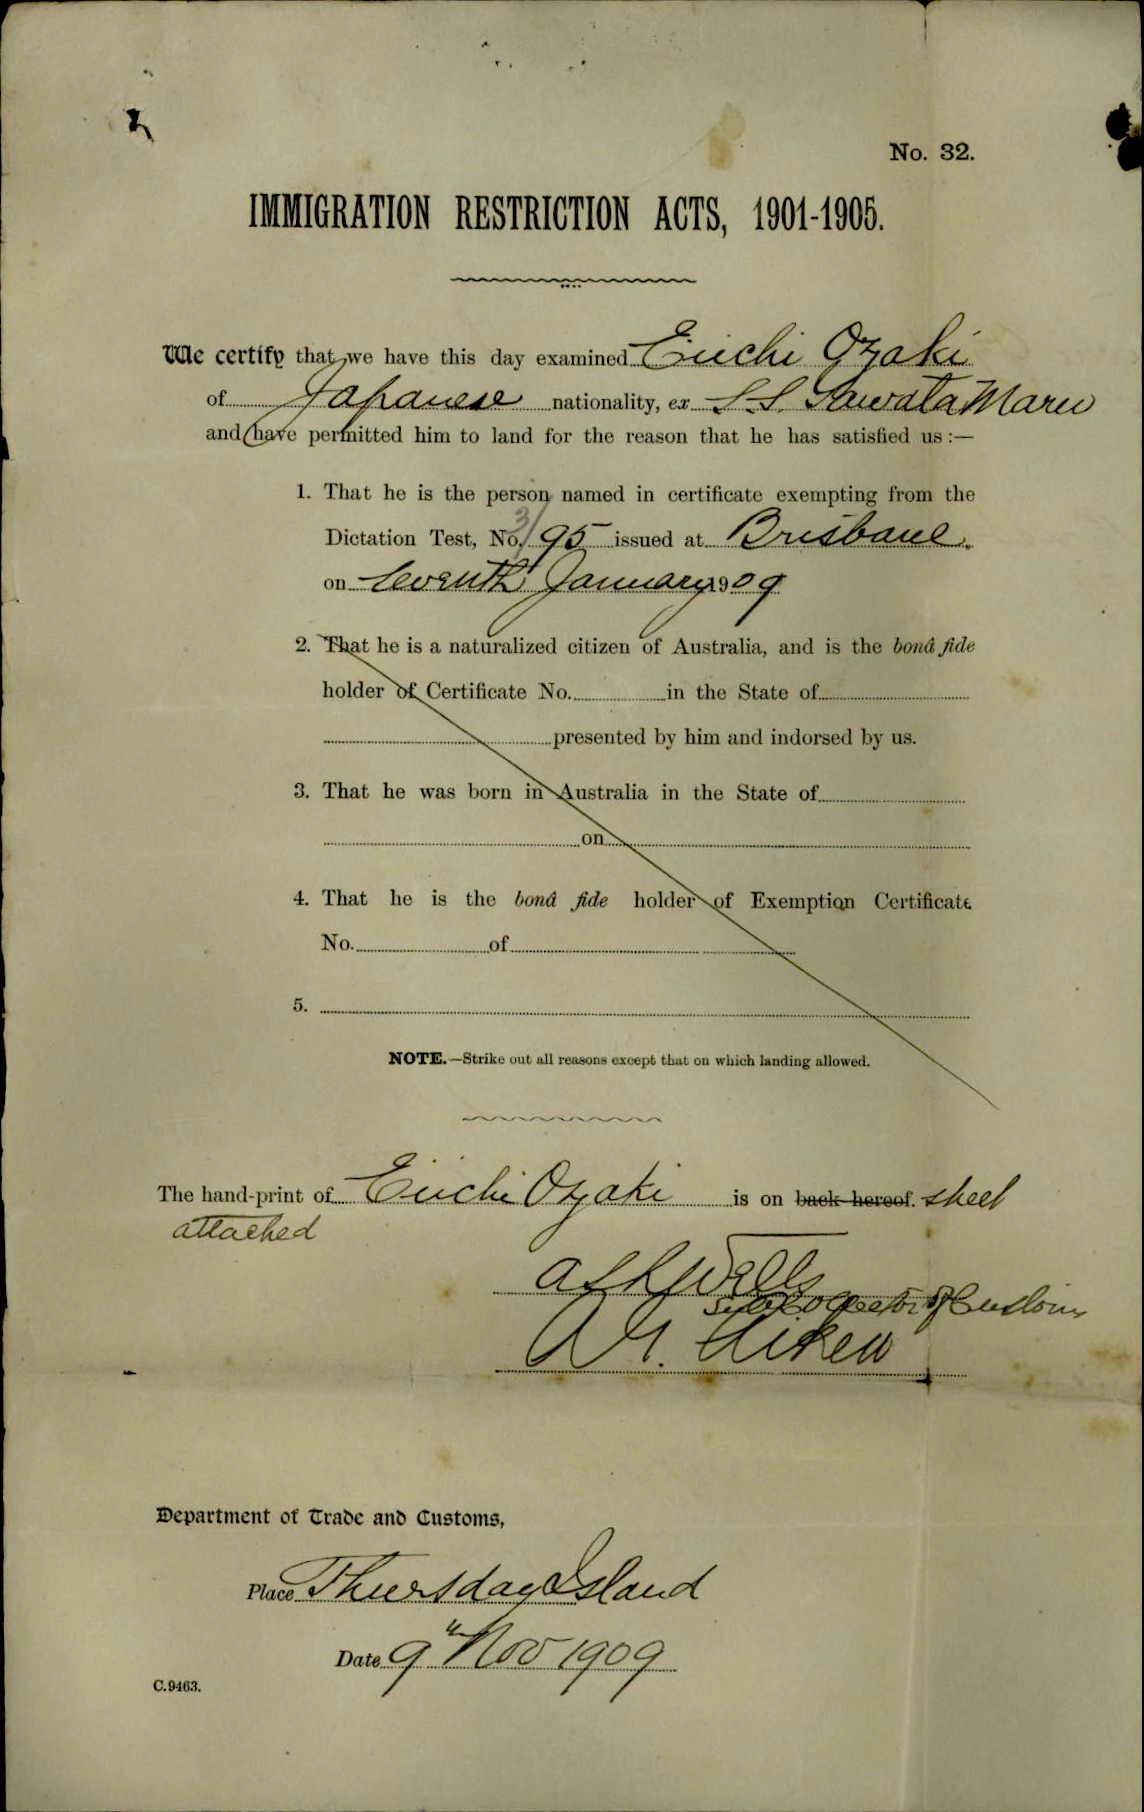 No. 32.
IMMIGRATION RESTRICTION ACTS, 1901-1905.
We certify that we have this day examined Eiichi Ozaki
of Japanese nationality, ex S.S. Yawata Maru
and have permitted him to land for the reason that he has satisfied us :—
1. That he is the person named in certificate exempting from the
Dictation Test, No. 3/95 issued at Brisbane.
on seventh January 1909
2. That he is a naturalized citizen of Australia, and is the bonâ fide
holder of Certificate No. in the State of
presented by him and indorsed by us.
3. That he was born in Australia in the State of
on
4. That he is the bonâ fide holder of Exemption Certificate
No. of
5.
NOTE.—Strike out all reasons except that on which landing allowed.
The hand-print of Eiichi Ozaki is on back hereof. sheet
attached
Wells
Sub Collector of Customs
Aitken
Department of Trade and Customs,
Place Thursday Island
Date 9th Nov 1909
C.9463.